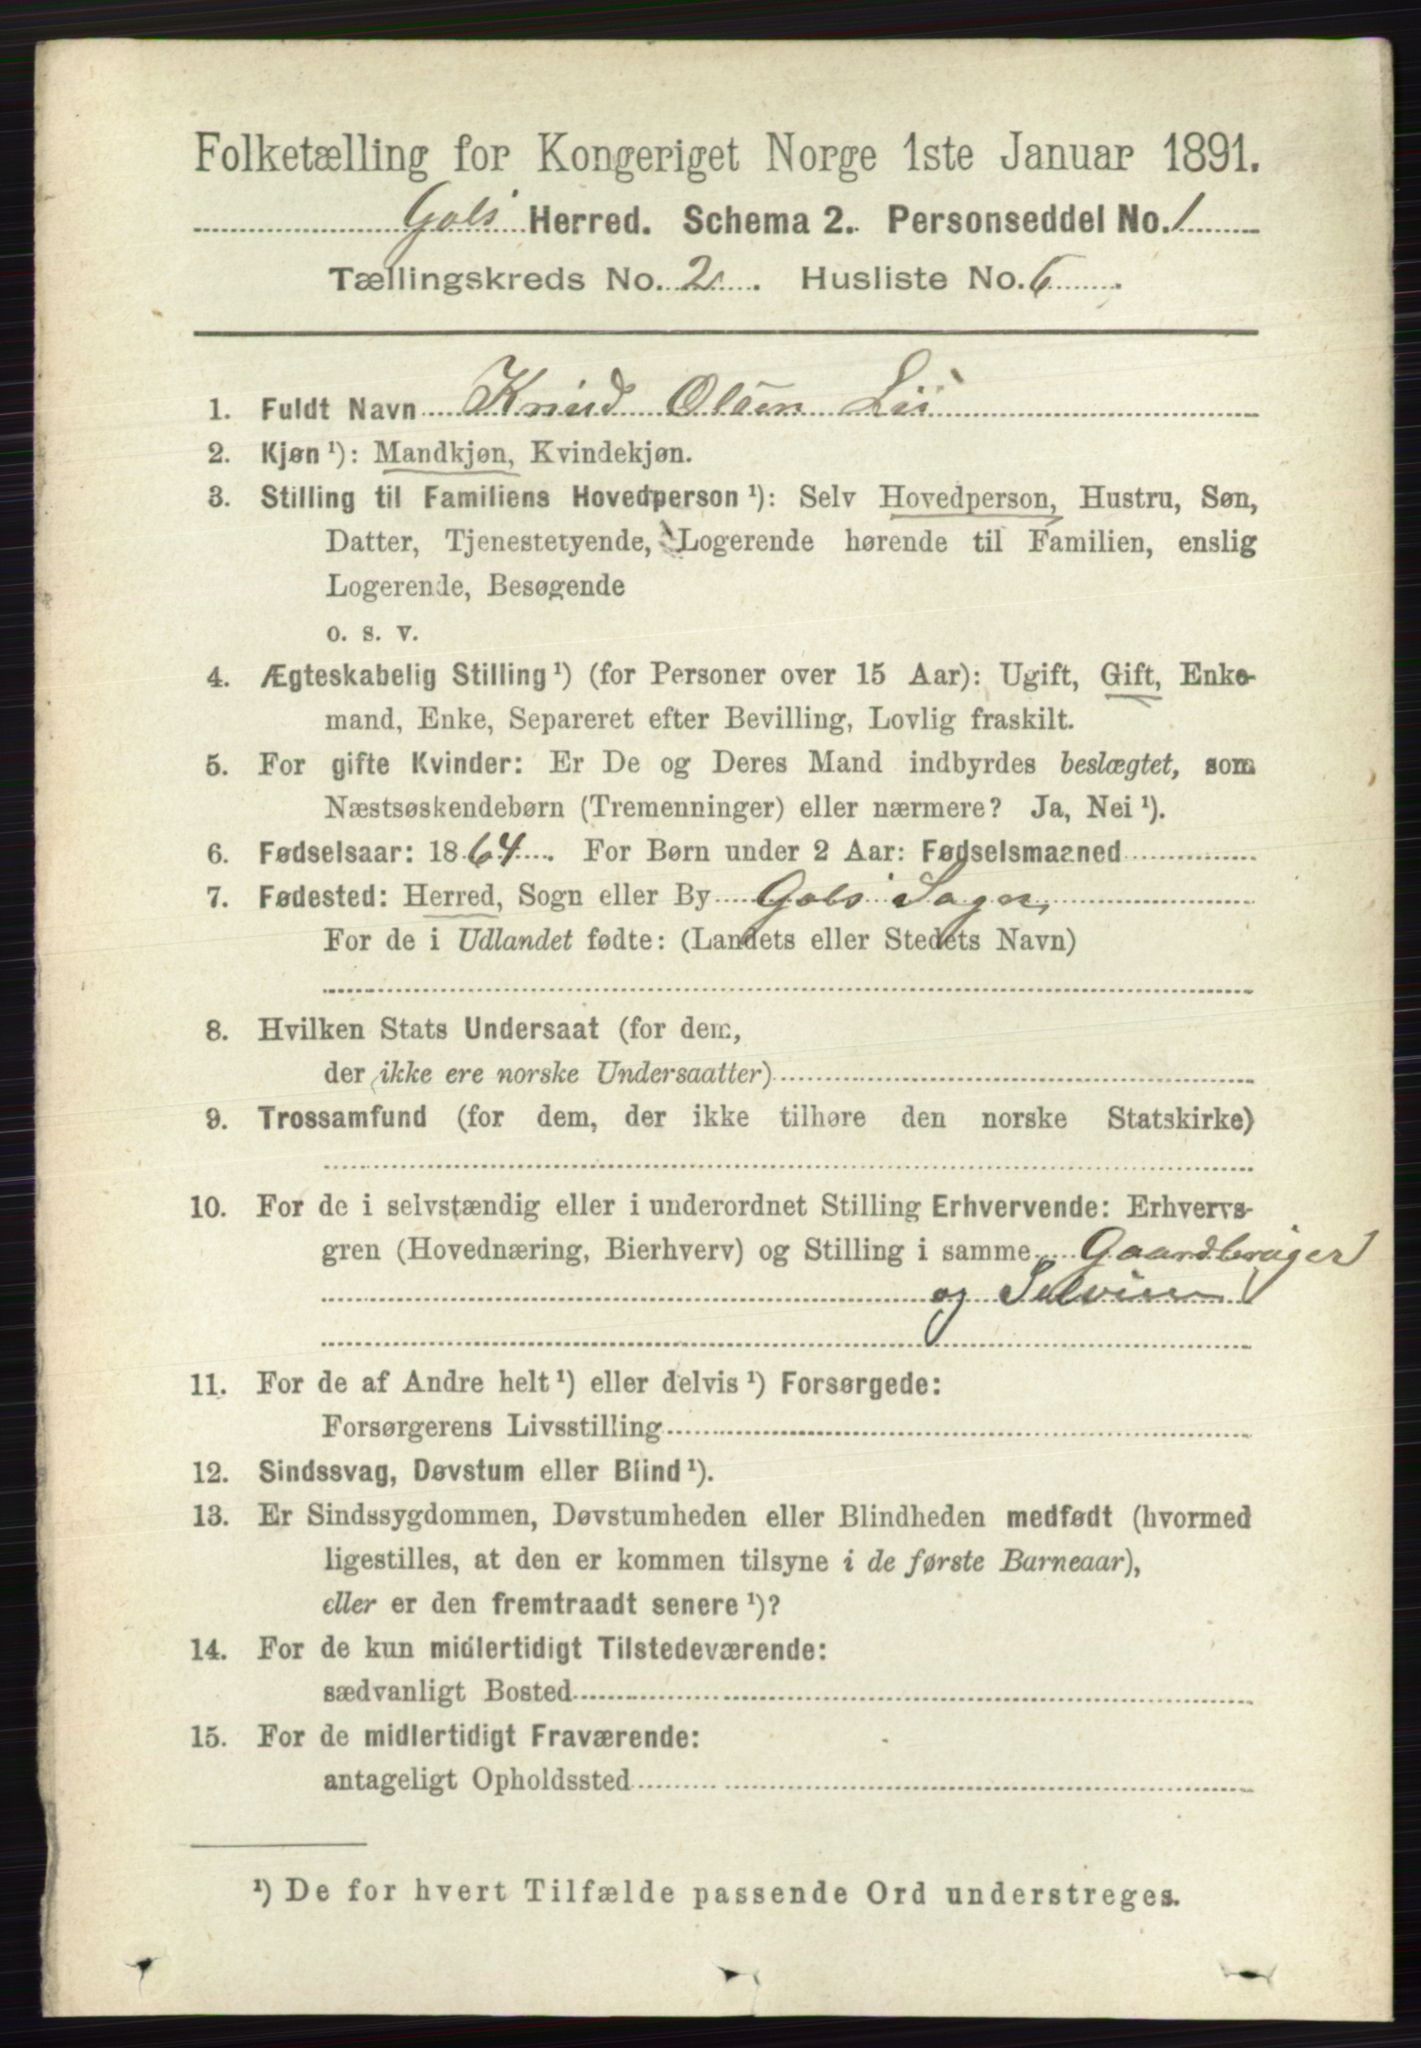 Folketælling for Kongeriget Norge 1ste Januar 1891.
Gols Herred. Schema 2. Personseddel No. 1
Tællingskreds No. 2. Husliste No. 6.
1. Fuldt Navn Knud Olsen Lii
2. Kjøn ¹): Mandkjøn, Kvindekjøn.
3. Stilling til Familiens Hovedperson ¹): Selv Hovedperson, Hustru, Søn,
Datter, Tjenestetyende, Logerende hørende til Familien, enslig
Logerende, Besøgende
o. s. v.
4. Ægteskabelig Stilling ¹) (for Personer over 15 Aar): Ugift, Gift, Enke-
mand, Enke, Separeret efter Bevilling, Lovlig fraskilt.
5. For gifte Kvinder: Er De og Deres Mand indbyrdes beslægtet, som
Næstsøskendebørn (Tremenninger) eller nærmere? Ja, Nei ¹).
6. Fødselsaar: 1864. For Børn under 2 Aar: Fødselsmaaned
7. Fødested: Herred, Sogn eller By Gols Sogn
For de i Udlandet fødte: (Landets eller Stedets Navn)
8. Hvilken Stats Undersaat (for dem,
der ikke ere norske Undersaatter)
9. Trossamfund (for dem, der ikke tilhøre den norske Statskirke)
10. For de i selvstændig eller i underordnet Stilling Erhvervende: Erhvervs-
gren (Hovednæring, Bierhverv) og Stilling i samme Gaardbruger
og Selveier
11. For de af Andre helt ¹) eller delvis ¹) Forsørgede:
Forsørgerens Livsstilling
12. Sindssvag, Døvstum eller Blind ¹).
13. Er Sindssygdommen, Døvstumheden eller Blindheden medfødt (hvormed
ligestilles, at den er kommen tilsyne i de første Barneaar),
eller er den fremtraadt senere ¹)?
14. For de kun midlertidigt Tilstedeværende:
sædvanligt Bosted
15. For de midlertidigt Fraværende:
antageligt Opholdssted
¹) De for hvert Tilfælde passende Ord understreges.